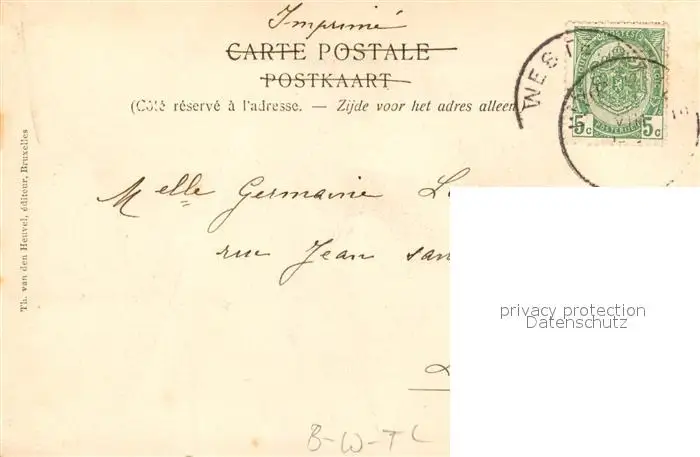 Imprimé
CARTE POSTALE
POSTKAART
(Côté réservé à l'adresse. — Zijde voor het adres alleen
WEST
5c POSTERIJEN 5c
Melle Germaine
rue Jean
Th. van den Heuvel, éditeur, Bruxelles
privacy protection
Datenschutz
B-W-TL